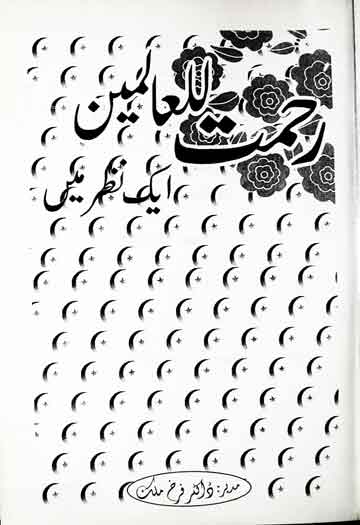 رحمت للعالمین
ایک نظر میں
مدیر: ڈاکٹر فرخ ملک